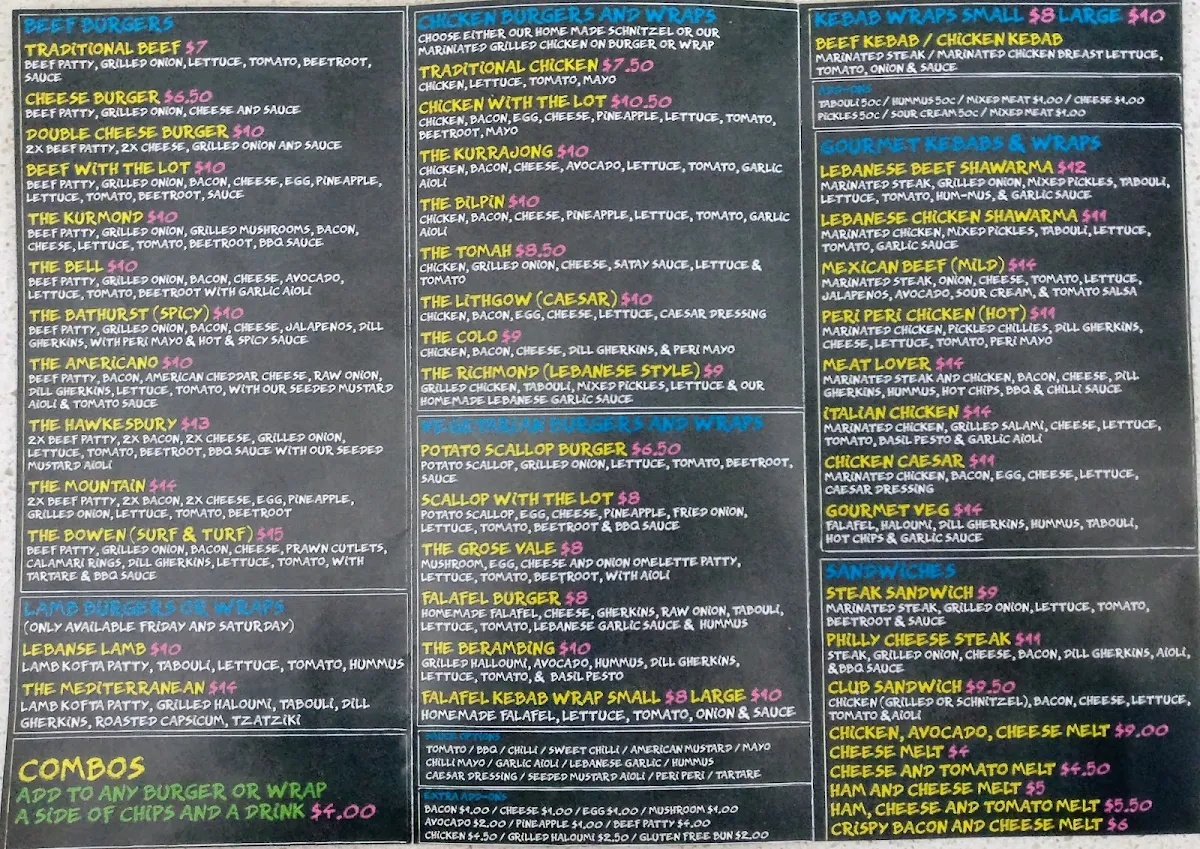 BEEF BURGERS
TRADITIONAL BEEF $7
BEEF PATTY, GRILLED ONION, LETTUCE, TOMATO, BEETROOT,
SAUCE
CHEESE BURGER $6.50
BEEF PATTY, GRILLED ONION, CHEESE AND SAUCE
DOUBLE CHEESE BURGER $10
2X BEEF PATTY, 2X CHEESE, GRILLED ONION AND SAUCE
BEEF WITH THE LOT $10
BEEF PATTY, GRILLED ONION, BACON, CHEESE, EGG, PINEAPPLE,
LETTUCE, TOMATO, BEETROOT, SAUCE
THE KURMOND $10
BEEF PATTY, GRILLED ONION, GRILLED MUSHROOMS, BACON,
CHEESE, LETTUCE, TOMATO, BEETROOT, BBQ SAUCE
THE BELL $10
BEEF PATTY, GRILLED ONION, BACON, CHEESE, AVOCADO,
LETTUCE, TOMATO, BEETROOT WITH GARLIC AIOLI
THE BATHURST (SPICY) $10
BEEF PATTY, GRILLED ONION, BACON, CHEESE, JALAPENOS, DILL
GHERKINS, WITH PERI MAYO & HOT & SPICY SAUCE
THE AMERICANO $10
BEEF PATTY, BACON, AMERICAN CHEDDAR CHEESE, RAW ONION,
DILL GHERKINS, LETTUCE, TOMATO, WITH OUR SEEDED MUSTARD
AIOLI & TOMATO SAUCE
THE HAWKESBURY $13
2X BEEF PATTY, 2X BACON, 2X CHEESE, GRILLED ONION,
LETTUCE, TOMATO, BEETROOT, BBQ SAUCE WITH OUR SEEDED
MUSTARD AIOLI
THE MOUNTAIN $14
2X BEEF PATTY, 2X BACON, 2X CHEESE, EGG, PINEAPPLE,
GRILLED ONION, LETTUCE, TOMATO, BEETROOT
THE BOWEN (SURF & TURF) $15
BEEF PATTY, GRILLED ONION, BACON, CHEESE, PRAWN CUTLETS,
CALAMARI RINGS, DILL GHERKINS, LETTUCE, TOMATO, WITH
TARTARE & BBQ SAUCE
LAMB BURGERS OR WRAPS
(ONLY AVAILABLE FRIDAY AND SATURDAY)
LEBANSE LAMB $10
LAMB KOFTA PATTY, TABOULI, LETTUCE, TOMATO, HUMMUS
THE MEDITERRANEAN $14
LAMB KOFTA PATTY, GRILLED HALOUMI, TABOULI, DILL
GHERKINS, ROASTED CAPSICUM, TZATZIKI
COMBOS
ADD TO ANY BURGER OR WRAP
A SIDE OF CHIPS AND A DRINK $4.00
CHICKEN BURGERS AND WRAPS
CHOOSE EITHER OUR HOME MADE SCHNITZEL OR OUR
MARINIATED GRILLED CHICKEN ON BURGER OR WRAP
TRADITIONAL CHICKEN $7.50
CHICKEN, LETTUCE, TOMATO, MAYO
CHICKEN WITH THE LOT $10.50
CHICKEN, BACON, EGG, CHEESE, PINEAPPLE, LETTUCE, TOMATO,
BEETROOT, MAYO
THE KURRAJONG $10
CHICKEN, BACON, CHEESE, AVOCADO, LETTUCE, TOMATO, GARLIC
AIOLI
THE BILPIN $10
CHICKEN, BACON, CHEESE, PINEAPPLE, LETTUCE, TOMATO, GARLIC
AIOLI
THE TOMAH $8.50
CHICKEN, GRILLED ONION, CHEESE, SATAY SAUCE, LETTUCE &
TOMATO
THE LITHGOW (CAESAR) $10
CHICKEN, BACON, EGG, CHEESE, LETTUCE, CAESAR DRESSING
THE COLO $9
CHICKEN, BACON, CHEESE, DILL GHERKINS, & PERI MAYO
THE RICHMOND (LEBANESE STYLE) $9
GRILLED CHICKEN, TABOULI, MIXED PICKLES, LETTUCE & OUR
HOMEMADE LEBANESE GARLIC SAUCE
VEGETARIAN BURGERS AND WRAPS
POTATO SCALLOP BURGER $6.50
POTATO SCALLOP, GRILLED ONION, LETTUCE, TOMATO, BEETROOT,
SAUCE
SCALLOP WITH THE LOT $8
POTATO SCALLOP, EGG, CHEESE, PINEAPPLE, FRIED ONION,
LETTUCE, TOMATO, BEETROOT & BBQ SAUCE
THE GROSE VALE $8
MUSHROOM, EGG, CHEESE AND ONION OMELETTE PATTY,
LETTUCE, TOMATO, BEETROOT, WITH AIOLI
FALAFEL BURGER $8
HOMEMADE FALAFEL, CHEESE, GHERKINS, RAW ONION, TABOULI,
LETTUCE, TOMATO, LEBANESE GARLIC SAUCE & HUMMUS
THE BERAMBING $10
GRILLED HALLOUMI, AVOCADO, HUMMUS, DILL GHERKINS,
LETTUCE, TOMATO, & BASIL PESTO
FALAFEL KEBAB WRAP SMALL $8 LARGE $10
HOMEMADE FALAFEL, LETTUCE, TOMATO, ONION & SAUCE
SAUCE OPTIONS
TOMATO / BBQ / CHILLI / SWEET CHILLI / AMERICAN MUSTARD / MAYO
CHILLI MAYO / GARLIC AIOLI / LEBANESE GARLIC / HUMMUS
CAESAR DRESSING / SEEDED MUSTARD AIOLI / PERI PERI / TARTARE
EXTRA ADD-ONS
BACON $1.00 / CHEESE $1.00 / EGG $1.00 / MUSHROOM $1.00
AVOCADO $2.00 / PINEAPPLE $1.00 / BEEF PATTY $4.00
CHICKEN $4.50 / GRILLED HALOUMI $2.50 / GLUTEN FREE BUN $2.00
KEBAB WRAPS SMALL $8 LARGE $10
BEEF KEBAB / CHICKEN KEBAB
MARINATED STEAK / MARINATED CHICKEN BREAST LETTUCE,
TOMATO, ONION & SAUCE
ADD-ONS
TABOULI 50C / HUMMUS 50C / MIXED MEAT $1.00 / CHEESE $1.00
PICKLES 50C / SOUR CREAM 50C / MIXED MEAT $1.00
GOURMET KEBABS & WRAPS
LEBANESE BEEF SHAWARMA $12
MARINATED STEAK, GRILLED ONION, MIXED PICKLES, TABOULI,
LETTUCE, TOMATO, HUM-MUS, & GARLIC SAUCE
LEBANESE CHICKEN SHAWARMA $11
MARINATED CHICKEN, MIXED PICKLES, TABOULI, LETTUCE,
TOMATO, GARLIC SAUCE
MEXICAN BEEF (MILD) $14
MARINATED STEAK, ONION, CHEESE, TOMATO, LETTUCE,
JALAPENOS, AVOCADO, SOUR CREAM, & TOMATO SALSA
PERI PERI CHICKEN (HOT) $11
MARINATED CHICKEN, PICKLED CHILLIES, DILL GHERKINS,
CHEESE, LETTUCE, TOMATO, PERI MAYO
MEAT LOVER $14
MARINATED STEAK AND CHICKEN, BACON, CHEESE, DILL
GHERKINS, HUMMUS, HOT CHIPS, BBQ & CHILLI SAUCE
ITALIAN CHICKEN $14
MARINATED CHICKEN, GRILLED SALAMI, CHEESE, LETTUCE,
TOMATO, BASIL PESTO & GARLIC AIOLI
CHICKEN CAESAR $11
MARINATED CHICKEN, BACON, EGG, CHEESE, LETTUCE,
CAESAR DRESSING
GOURMET VEG $14
FALAFEL, HALOUMI, DILL GHERKINS, HUMMUS, TABOULI,
HOT CHIPS & GARLIC SAUCE
SANDWICHES
STEAK SANDWICH $9
MARINATED STEAK, GRILLED ONION, LETTUCE, TOMATO,
BEETROOT & SAUCE
PHILLY CHEESE STEAK $11
STEAK, GRILLED ONION, CHEESE, BACON, DILL GHERKINS, AIOLI,
&BBQ SAUCE
CLUB SANDWICH $9.50
CHICKEN (GRILLED OR SCHNITZEL), BACON, CHEESE, LETTUCE,
TOMATO &AIOLI
CHICKEN, AVOCADO, CHEESE MELT $9.00
CHEESE MELT $4
CHEESE AND TOMATO MELT $4.50
HAM AND CHEESE MELT $5
HAM, CHEESE AND TOMATO MELT $5.50
CRISPY BACON AND CHEESE MELT $6